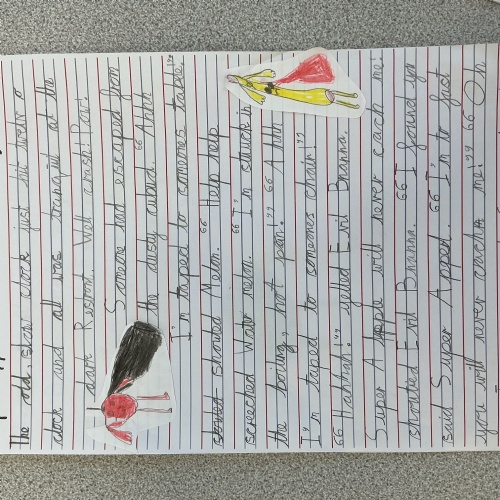 The old, slow clock just hit twelve o
clock and all was tranquil at the
dark Restront. Well crash! Pow!
Someone had escaped from
the dusty cuberd. “Ahhh
I'm taped to someones table!”
shouted Melon. “Help help
screeched Water melon. “I'm stuck in
the boiling, hot pan!” “Ahhh
I'm taped to someones chair!”
“Hahhah!” yelled Evil Bnanna.
Super Apple will never cacth me!
shouted Evil Bnanna. “I found you
said Super Apped. “I'm to fast
you will never cacth me!” “Oh